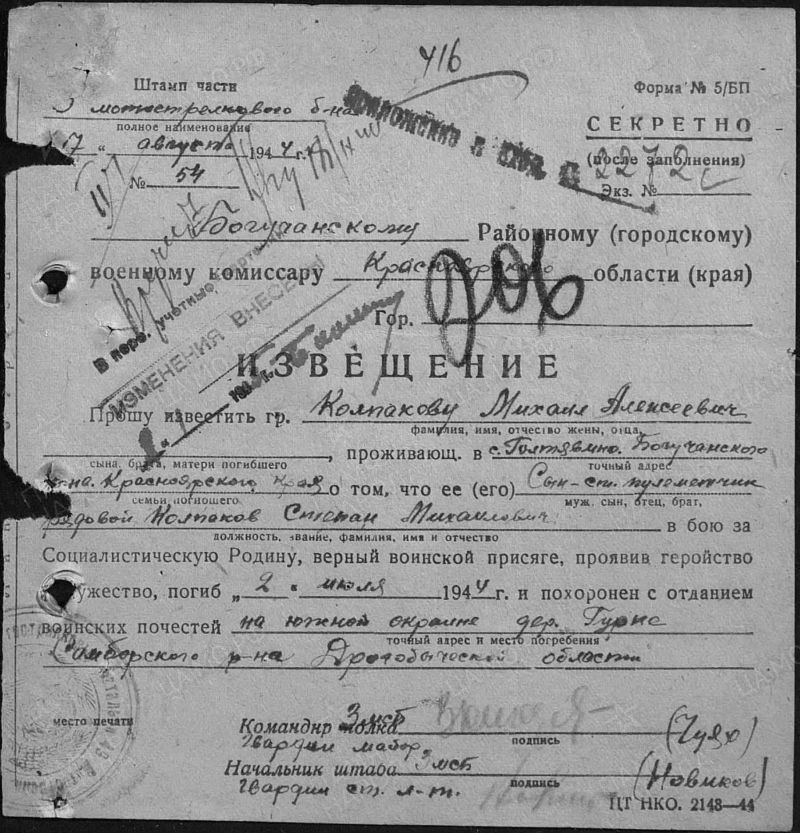 416
Штамп части
Форма № 5/БП
3 мотострелкового б-на
полное наименование
СЕКРЕТНО
17 " августа 1944 г.
(после заполнения)
№ 54
2272с
Экз. №
Приложение к вход.
Богучанскому Районному (городскому)
военному комиссару Красноярского области (края)
Гор.
206
В перс. учетные
ИЗМЕНЕНИЯ ВНЕСЕНЫ
ИЗВЕЩЕНИЕ
Прошу известить гр. Колпакову Михаил Алексеевич
фамилия, имя, отчество жены, отца,
, проживающ. в с. Голтявино. Богучанского
сына, брата, матери погибшего
точный адрес
р-на. Красноярского края о том, что ее (его) Сын-ст. пулеметчик
семьи погибшего
муж, сын, отец, брат,
рядовой Колпаков Степан Михаилович в бою за
должность, звание, фамилия, имя и отчество
Социалистическую Родину, верный воинской присяге, проявив геройство
и мужество, погиб „ 2 " июля 1944 г. и похоронен с отданием
воинских почестей на южной окраине дер. Гурне
точный адрес и место погребения
Самборского р-на Дрогобыческой области
место печати
Командир полка 3 мсб (Чуяо)
Гвардии майор
подпись
Начальник штаба 3 мсб (Новиков)
Гвардии ст. л-т.
подпись
ЦТ НКО. 2148—44